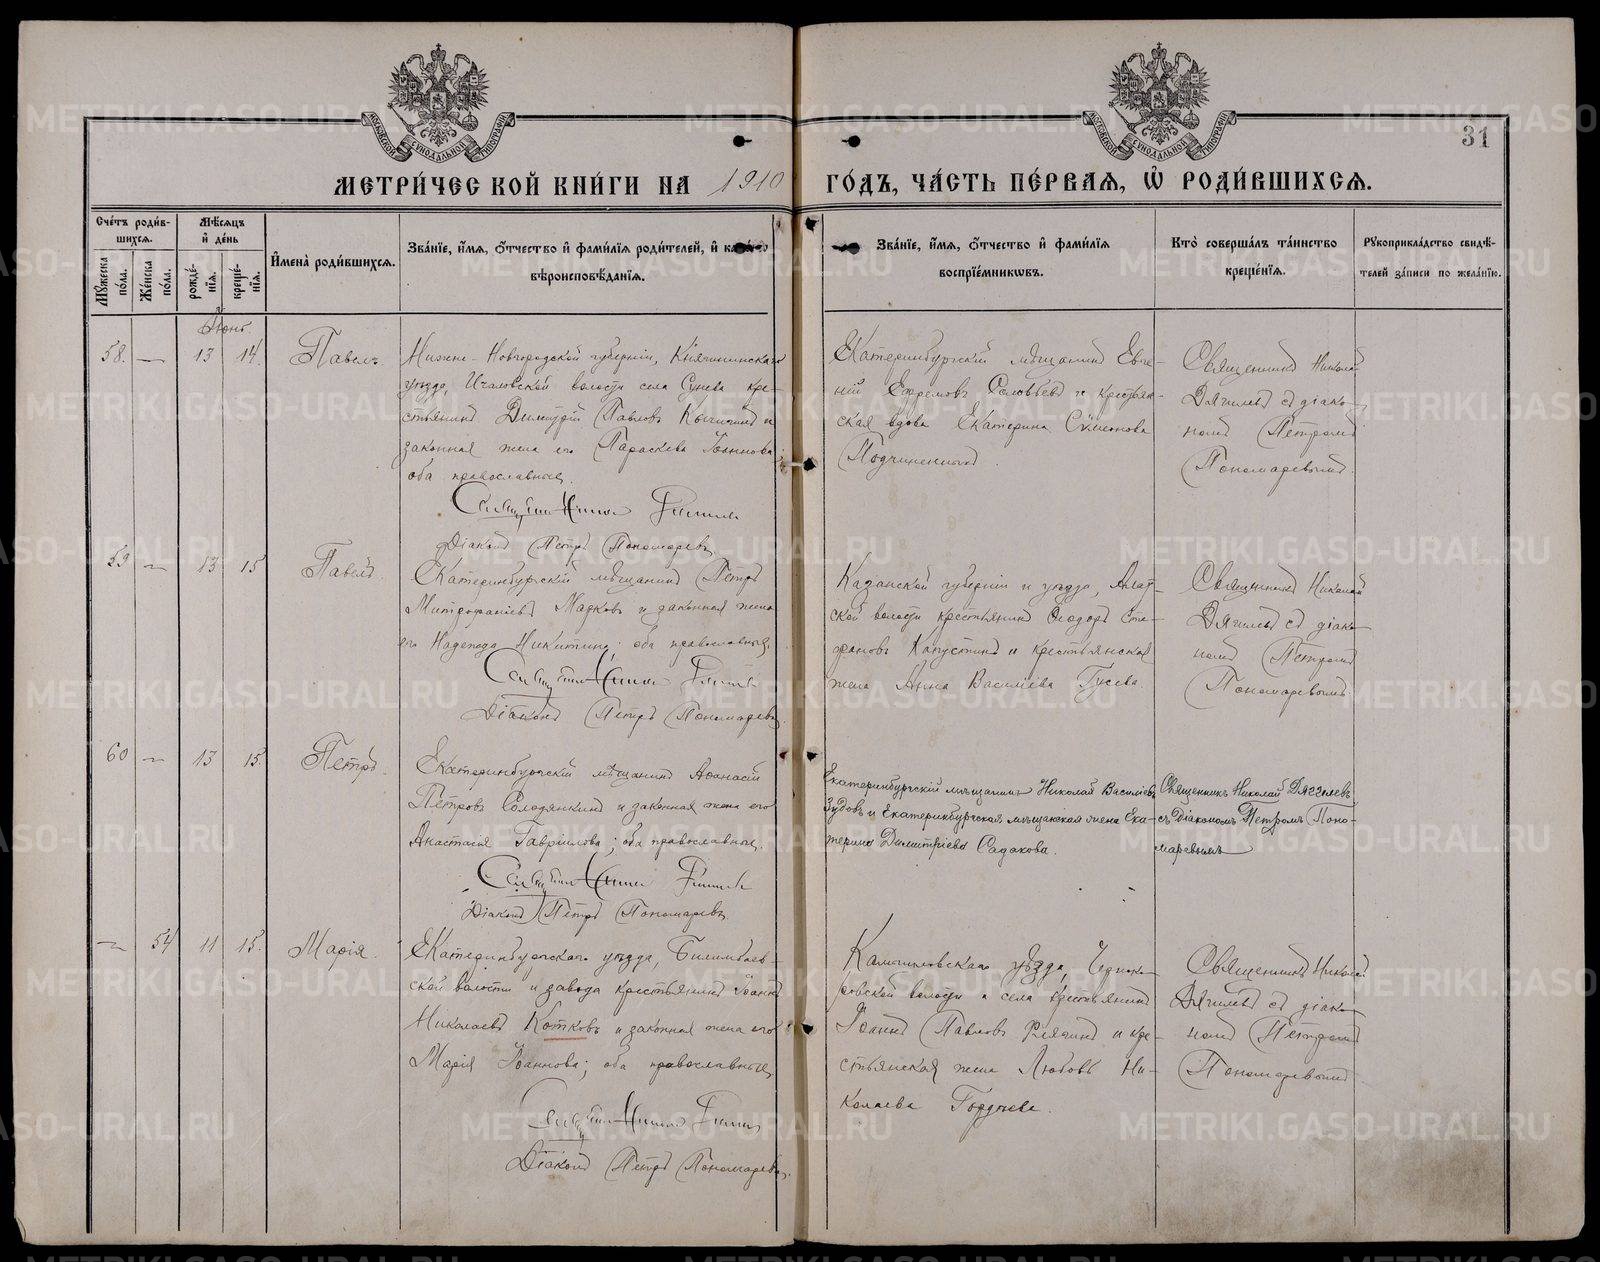 31
МЕТРИ́ЧЕСКОЙ КНИ́ГИ НА 1910 ГО́ДЪ, ЧА́СТЬ ПЕ́РВАЯ, Ѡ҆ РОДИ́ВШИХСЯ.
МОСКОВСКОЙ СѴНОДАЛЬНОЙ ТИПОГРАФІИ
МОСКОВСКОЙ СѴНОДАЛЬНОЙ ТИПОГРАФІИ
Сче́тъ роди́в-
шихся.
Му́жеска по́ла.
Же́нска по́ла.
Мѣ́сяцъ
и҆ де́нь
рожде́нїя.
креще́нїя.
И҆мена̀ роди́вшихся.
Зва́нїе, и҆́мя, ѻ҆́тчество и҆ фами́лїя роди́телей, и҆ како́гѡ
вѣроисповѣ́данїя.
Зва́нїе, и҆́мя, ѻ҆́тчество и҆ фами́лїя
воспрїе́мникѡвъ.
Кто̀ соверша́лъ та́инство
креще́нїя.
Рꙋкоприкла́дство свидѣ́-
телей за́писи по жела́нїю.
Іюнь
58. — 13 14. Павелъ.
Нижне-Новгородской губерніи, Княгининскаго
уѣзда, Ичаловской волости села Сунева кре-
стьянинъ Димитрій Павловъ и
законная жена его Параскева Іоаннова;
оба православные.
Діаконъ Петръ Пономаревъ
Екатеринбургскій мѣщанинъ Евге-
ній Ефремовъ Соловьевъ и крестьян-
ская вдова Екатерина Симеонова
Священникъ Николай
Дягилевъ съ діако-
номъ Петромъ
Пономаревымъ.
59 — 13 15 Павелъ.
Екатеринбургскій мѣщанинъ Петръ
Митрофаніевъ и законная жена
его Надежда Никитина; оба православные.
Діаконъ Петръ Пономаревъ
Казанской губерніи и уѣзда,
ской волости крестьянинъ Ѳеодоръ Сте-
фановъ Капустинъ и крестьянская
жена Анна Василіева Гусева.
Священникъ Николай
Дягилевъ съ діако-
номъ Петромъ
Пономаревымъ.
60 — 13 15. Петръ.
Екатеринбургскій мѣщанинъ Аѳанасій
Петровъ Солодянкинъ и законная жена его
Анастасія Гавріилова; оба православные.
Діаконъ Петръ Пономаревъ
Екатеринбургскій мѣщанинъ Николай Василіевъ
Зудовъ и Екатеринбургская мѣщанская жена Ека-
терина Димитріева Садакова.
Священникъ Николай Дягилевъ
съ Діакономъ Петромъ Поно-
маревымъ
— 54 11 15. Марія.
Екатеринбургскаго уѣзда, Билимбаев-
ской волости и завода крестьянинъ Іоаннъ
Николаевъ Котковъ и законная жена его
Марія Іоаннова; оба православные.
Діаконъ Петръ Пономаревъ.
Камышловскаго уѣзда,
ровской волости и села крестьянинъ
Іоаннъ Павловъ и кре-
стьянская жена Любовь Ни-
колаева Гордѣева.
Священникъ Николай
Дягилевъ съ діако-
номъ Петромъ
Пономаревымъ
METRIKI.GASO-URAL.RU